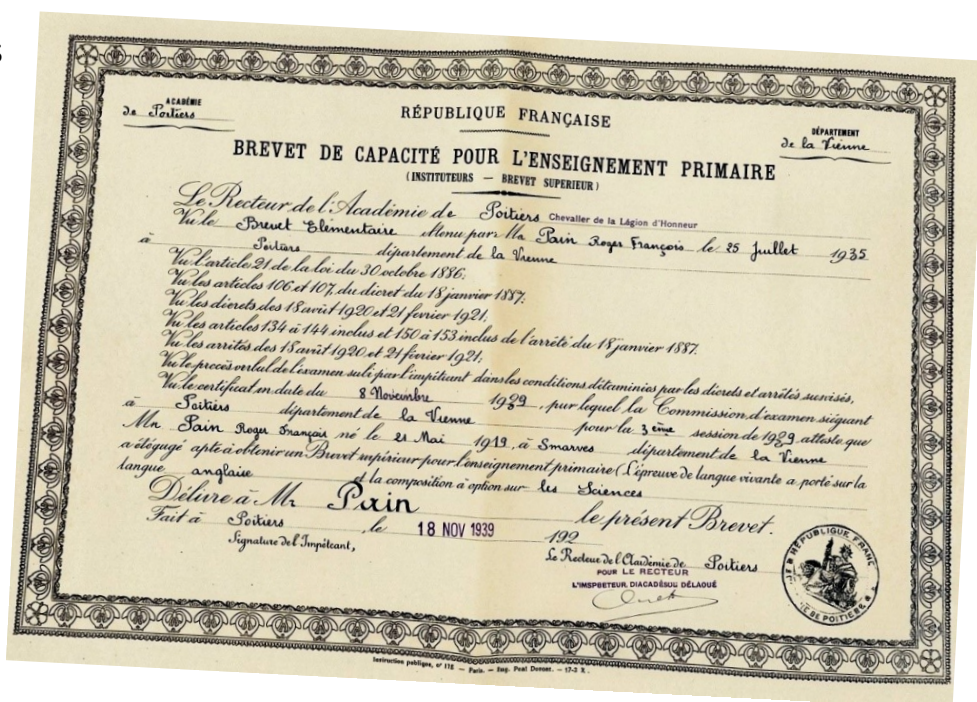 S
ACADÉMIE
de Poitiers
RÉPUBLIQUE FRANÇAISE
DÉPARTEMENT
de la Vienne
BREVET DE CAPACITÉ POUR L'ENSEIGNEMENT PRIMAIRE
(INSTITUTEURS — BREVET SUPERIEUR)
Le Recteur de l'Académie de Poitiers Chevalier de la Légion d'Honneur
Vu le Brevet Elémentaire par Pain Roger François le 25 Juillet 1935
à Poitiers département de la Vienne
Vu l'article 21 de la loi du 30 octobre 1886;
Vu les articles 106 et 107, du dicret du 18 janvier 1887;
Vu les dicrets des 18 avût 1920 et 21 fevrier 1921,
Vu les articles 134 à 144 inclus et 150 à 153 inclus de l'arrété du 18 janvier 1887.
Vu les arrités des 18 avût 1920 et 21 février 1921,
Vu le procès verbal de l'examen subi par l'impétrant dans les conditions par les dicrets et arrêtés susvisés,
Vu le certificat en date du 8 Novembre 1939, par lequel la Commission d'examen siégant
à Poitiers département de la Vienne pour la 3ème session de 1939 atteste que
Mr. Pain Roger François né le 21 Mai 1919, à Smarves département de la Vienne
apte à obtenir un Brevet supérieur pour l'enseignement primaire (L'épreuve de langue vivante a porté sur la
langue anglaise et la composition à option sur les Sciences
Délivré à Mr Pain le présent Brevet.
Fait à Poitiers, le 18 NOV 1939 192
Signature de l'Impétrant,
Le Recteur de l'Académie de Poitiers
POUR LE RECTEUR
L'IMSPBETEUR, DIACADÉSOU DÉLAOUÉ
RÉPUBLIQUE FRANC
DE POITIERS
Instruction publique, n° 118 — Paris. — Imp. Paul Dupont. — 17-2 X.